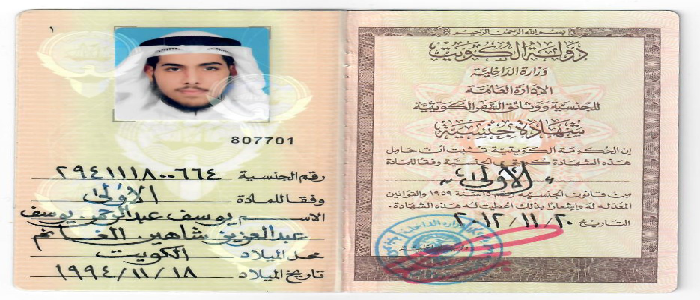 ١
807701
رقم الجنسية ٢٩٤١١١٨٠٠٦٦٤
وفقا للمادة الأولى
الاسم يوسف عبدالرحمن يوسف
عبدالعزيز شاهين الغانم
محل الميلاد الكويت
تاريخ الميلاد ١٩٩٤/١١/١٨
بسم الله الرحمن الرحيم
دولة الكويت
وزارة الداخلية
الادارة العامة
للجنسية ووثائق السفر الكويتية
شهادة جنسية
إن الحكومة الكويتية تثبت أن حامل
هذه الشهادة كويتي الجنسية وفقا للمادة
الأولى
من قانون الجنسية لسنة ١٩٥٩ والقوانين
المعدلة له وإشعارا بذلك أعطيت له هذه الشهادة.
التاريخ ٢٠١٢/١١/٢٠